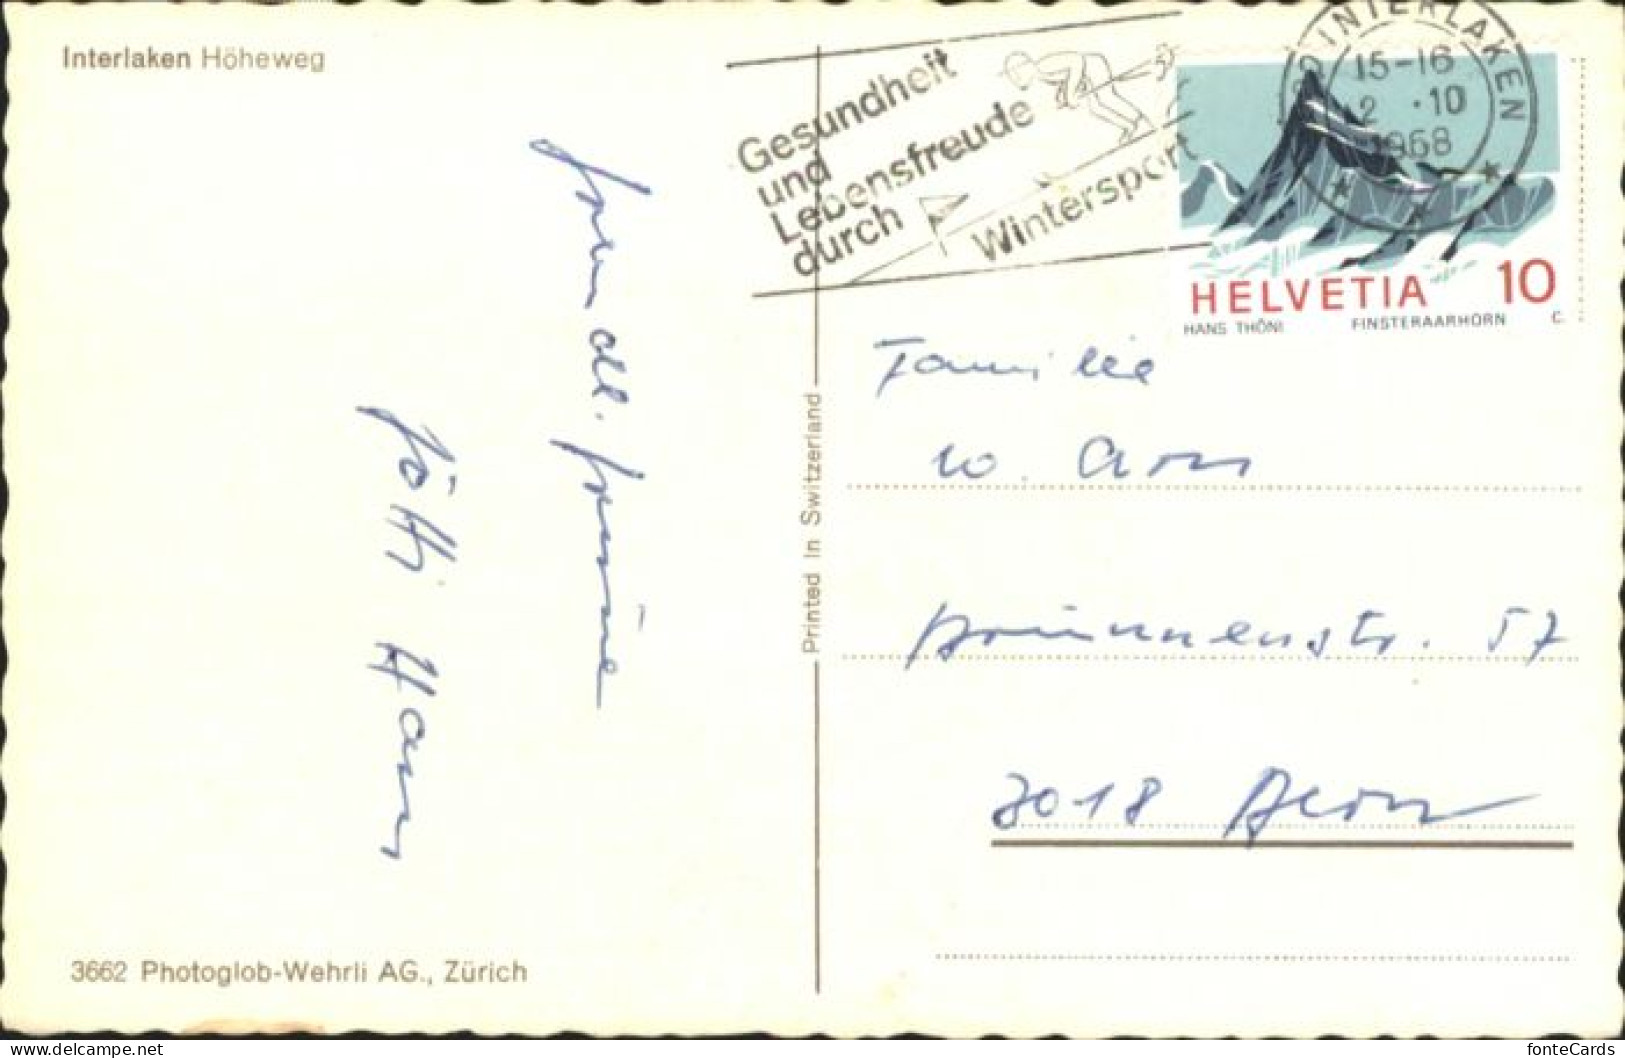 Interlaken Höheweg
Gesundheit
und
Lebensfreude
durch
Wintersport
INTERLAKEN
15-16
2 .10
1968
HELVETIA 10
HANS THÖNI FINSTERAARHORN C.
Familie
W. Aom
Brünnenstr. 57
3018 Bern
freundl. Grüsse
Printed in Switzerland
3662 Photoglob-Wehrli AG., Zürich
fonteCards
www.delcampe.net